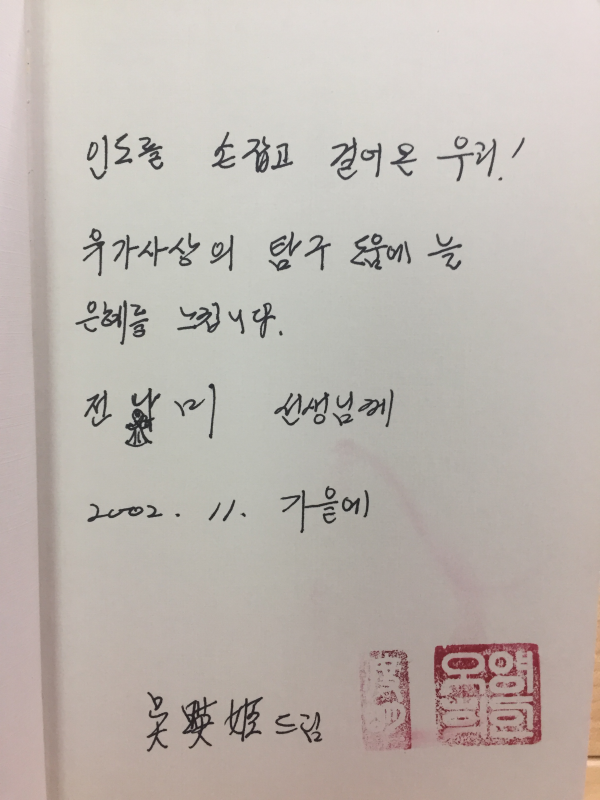 인도를 손잡고 걸어온 우리!
우가사상의 탐구 도움에 늘
은혜를 느낍니다.
전 미 선생님께
2002. 11. 가을에
吳 姬 드림